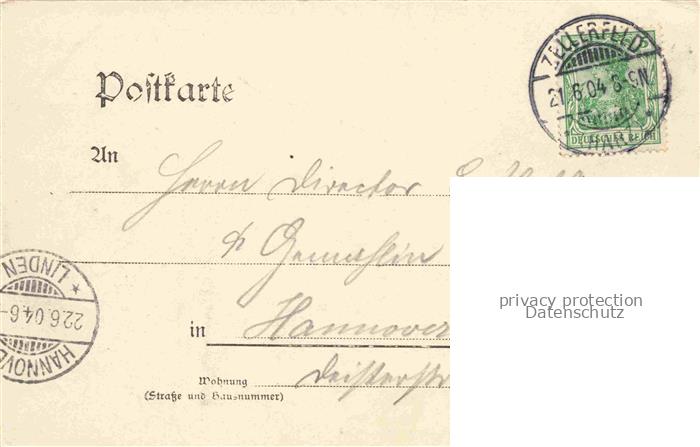 ZELLERFELD
21.6.04.8-9N.
DEUTSCHES REICH
Postkarte
An
Herrn Director
& Gemahlin
* LINDEN
22.6.04.6-
HANNOVE
in Hannover
Wohnung
(Straße und Hausnummer)
Deisterstr
privacy protection
Datenschutz